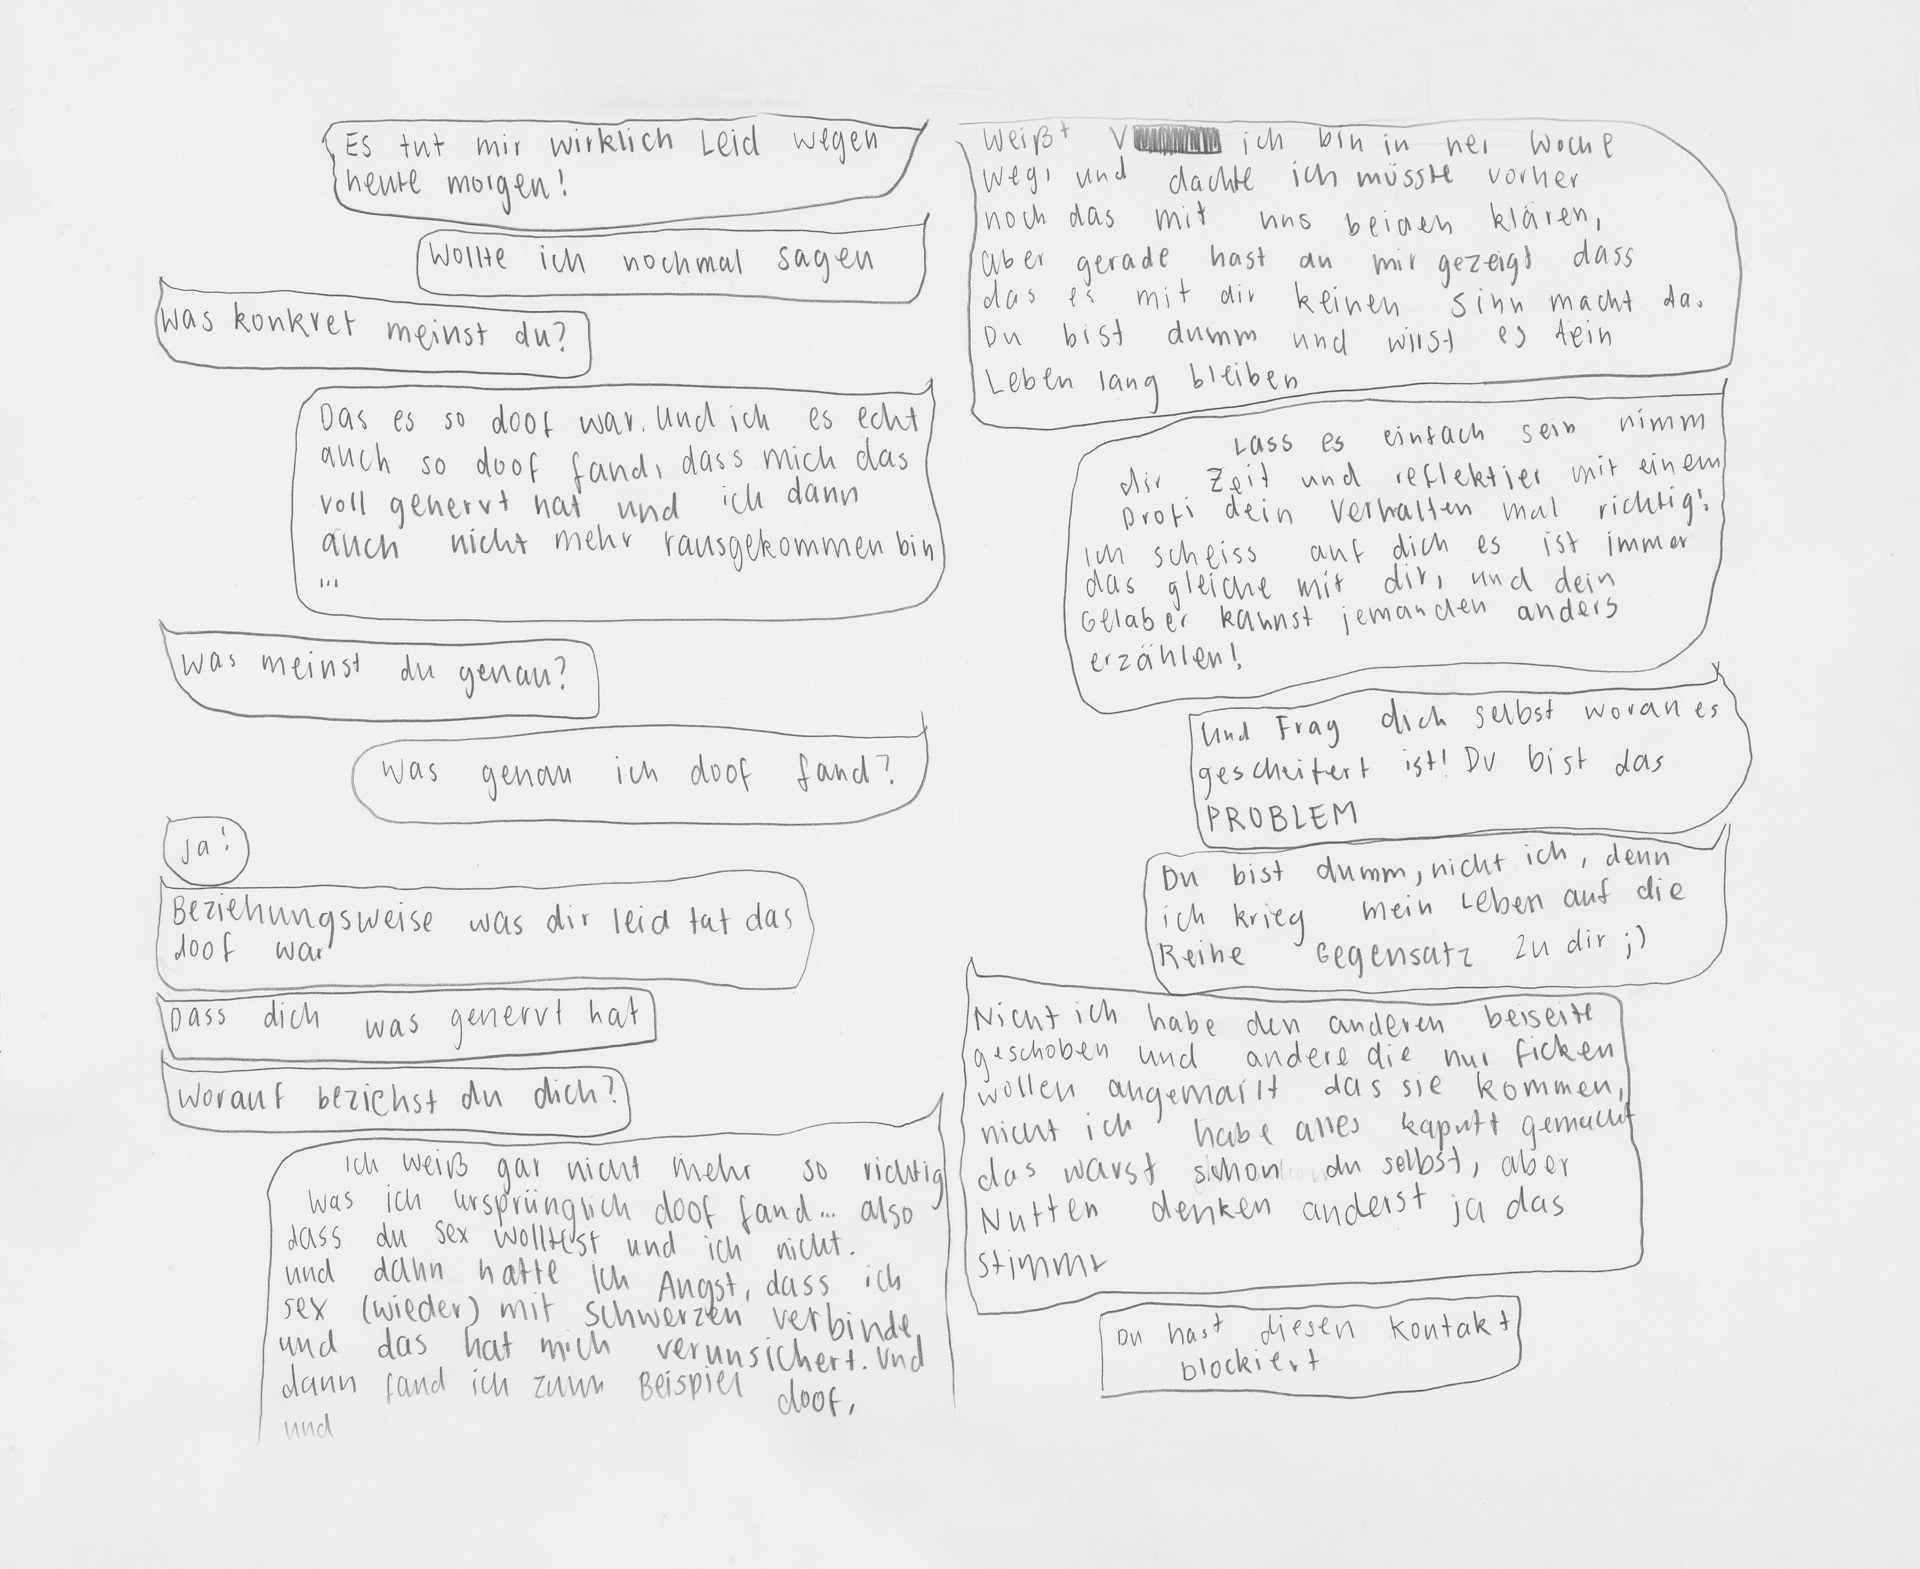 Es tut mir wirklich Leid wegen
heute morgen!
Wollte ich nochmal sagen
Was konkret meinst du?
Das es so doof war. Und ich es echt
auch so doof fand, dass mich das
voll genervt hat und ich dann
auch nicht mehr rausgekommen bin
...
Was meinst du genau?
Was genau ich doof fand?
Ja!
Beziehungsweise was dir leid tat das
doof war
Dass dich was genervt hat
Worauf beziehst du dich?
Ich weiß gar nicht mehr so richtig
was ich ursprünglich doof fand... also
dass du sex wolltest und ich nicht.
und dann hatte ich Angst, dass ich
sex (wieder) mit Schmerzen verbinde,
und das hat mich verunsichert. Und
dann fand ich zum Beispiel doof,
und
Weißt V ich bin in ner Woche
weg, und dachte ich müsste vorher
noch das mit uns beiden klären,
aber gerade hast du mir gezeigt dass
das es mit dir keinen Sinn macht da.
Du bist dumm und wirst es dein
Leben lang bleiben
Lass es einfach sein nimm
dir Zeit und reflektier mit einem
Profi dein Verhalten mal richtig!
Ich scheiss auf dich es ist immer
das gleiche mit dir, und dein
Gelaber kannst jemanden anders
erzählen!
Und Frag dich selbst woran es
gescheitert ist! Du bist das
PROBLEM
Du bist dumm, nicht ich, denn
ich krieg mein Leben auf die
Reihe Gegensatz zu dir ;)
Nicht ich habe den anderen beiseite
geschoben und andere die nur ficken
wollen angemailt das sie kommen,
nicht ich habe alles kaputt gemacht
das warst schon du selbst, aber
Nutten denken anderst ja das
stimmt
Du hast diesen Kontakt
blockiert